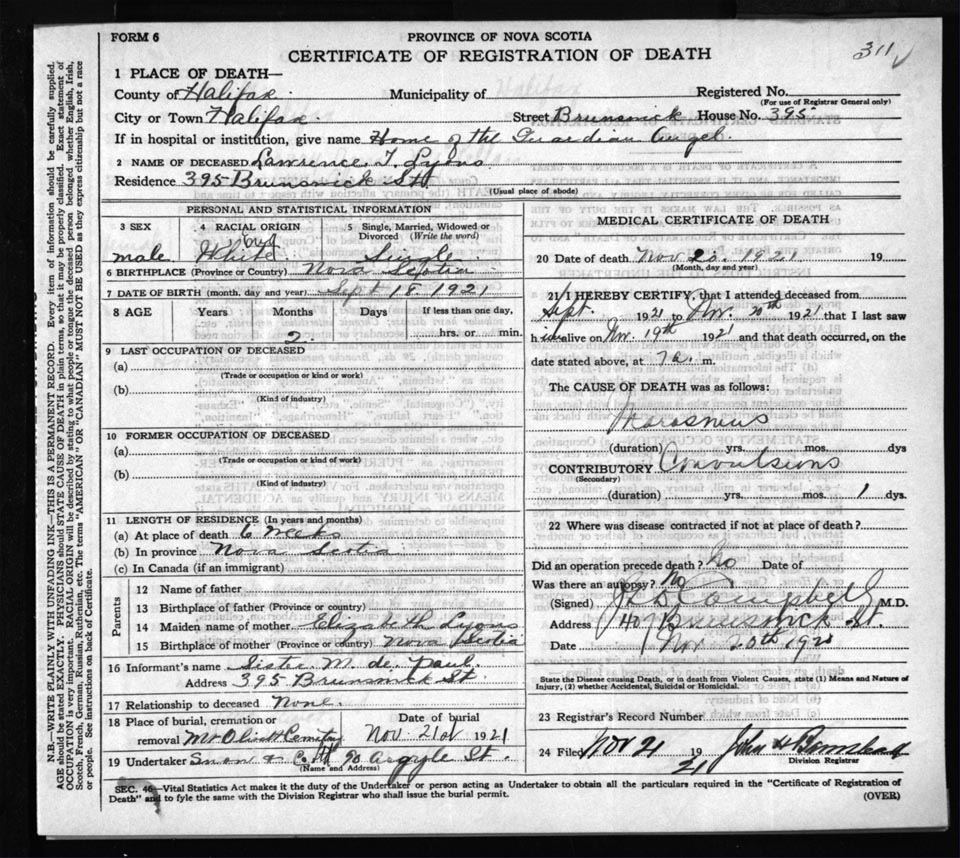 FORM 6
PROVINCE OF NOVA SCOTIA
CERTIFICATE OF REGISTRATION OF DEATH
311
1 PLACE OF DEATH—
County of Halifax Municipality of Registered No.
(For use of Registrar General only)
City or Town Halifax. Street Brunswick House No. 395
If in hospital or institution, give name Home of the Guardian Angel
2 NAME OF DECEASED Lawrence T. Lyons
Residence 395 Brunswick St.
(Usual place of abode)
PERSONAL AND STATISTICAL INFORMATION
3 SEX 4 RACIAL ORIGIN 5 Single, Married, Widowed or Divorced (Write the word)
male White Single
6 BIRTHPLACE (Province or Country) Nova Scotia
7 DATE OF BIRTH (month, day and year) Sept 18. 1921
8 AGE Years Months Days If less than one day,
2. hrs. or min.
9 LAST OCCUPATION OF DECEASED
(a)
(Trade or occupation or kind or work)
(b)
(Kind of industry)
10 FORMER OCCUPATION OF DECEASED
(a)
(Trade or occupation or kind of work)
(b)
(Kind of industry)
11 LENGTH OF RESIDENCE (In years and months)
(a) At place of death 6 weeks
(b) In province Nova Scotia
(c) In Canada (if an immigrant)
Parents
12 Name of father
13 Birthplace of father (Province or country)
14 Maiden name of mother Elizabeth Lyons
15 Birthplace of mother (Province or country) Nova Scotia
16 Informant's name Sister M. de Paul.
Address 395 Brunswick St
17 Relationship to deceased None.
18 Place of burial, cremation or removal Mt Olivet Cemetery
Date of burial Nov. 21st 1921
19 Undertaker Snow & Co 90 Argyle St.
(Name and Address)
MEDICAL CERTIFICATE OF DEATH
20 Date of death Nov 20. 1921 19
(Month, day and year)
21 I HEREBY CERTIFY, that I attended deceased from
Sept. 1921 to Nov. 20th 1921 that I last saw
h alive on Nov. 19th 1921 and that death occurred, on the
date stated above, at 7 a. m.
The CAUSE OF DEATH was as follows:
Marasmus
(duration) yrs. mos. dys
CONTRIBUTORY Convulsions
(Secondary)
(duration) yrs. mos. 1 dys.
22 Where was disease contracted if not at place of death?
Did an operation precede death? No Date of
Was there an autopsy? No
(Signed) Campbell M.D.
Address 407 Brunswick St.
Date Nov 20th 1921
State the Disease causing Death, or in death from Violent Causes, state (1) Means and Nature of
Injury, (2) whether Accidental, Suicidal or Homicidal.
23 Registrar's Record Number
24 Filed Nov 21 19 21 John H
Division Registrar
SEC. 46—Vital Statistics Act makes it the duty of the Undertaker or person acting as Undertaker to obtain all the particulars required in the "Certificate of Registration of
Death" and to fyle the same with the Division Registrar who shall issue the burial permit. (OVER)
N.B.—WRITE PLAINLY WITH UNFADING INK—THIS IS A PERMANENT RECORD. Every item of information should be carefully supplied.
AGE should be stated EXACTLY. PHYSICIANS should STATE CAUSE OF DEATH in plain terms, so that it may be properly classified. Exact statement of
OCCUPATION is very important. RACIAL ORIGIN will be described by stating to what people or tongue the deceased person belonged whether English, Irish,
Scotch, French, German, Russian, Ruthenian, etc. The terms "AMERICAN" OR "CANADIAN" MUST NOT BE USED as they express citizenship but not a race
or people. See instructions on back of Certificate.